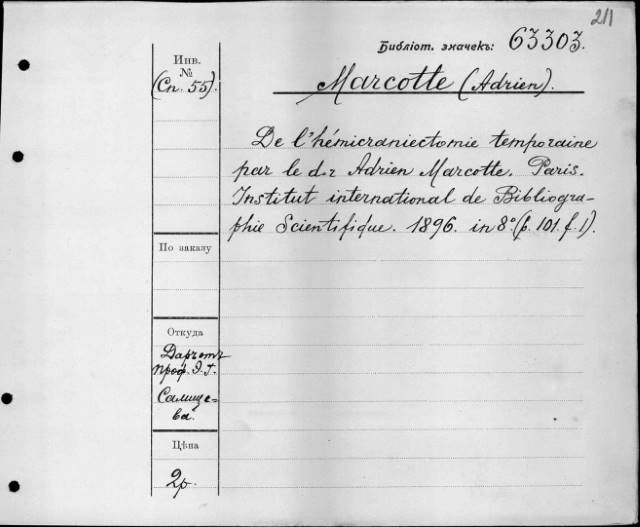 211
Библіот. значекъ: 63303.
Marcotte (Adrien).
Инв.
№
(Сп. 55).
De l'hémicraniectomie temporaire
par le d-r Adrien Marcotte. Paris.
Institut international de Bibliogra-
phie Scientifique. 1896. in 8° (p. 101. f. 1).
По заказу
Откуда
Даръ отъ
проф. Э. Г.
Салище-
ва.
Цѣна
2р.